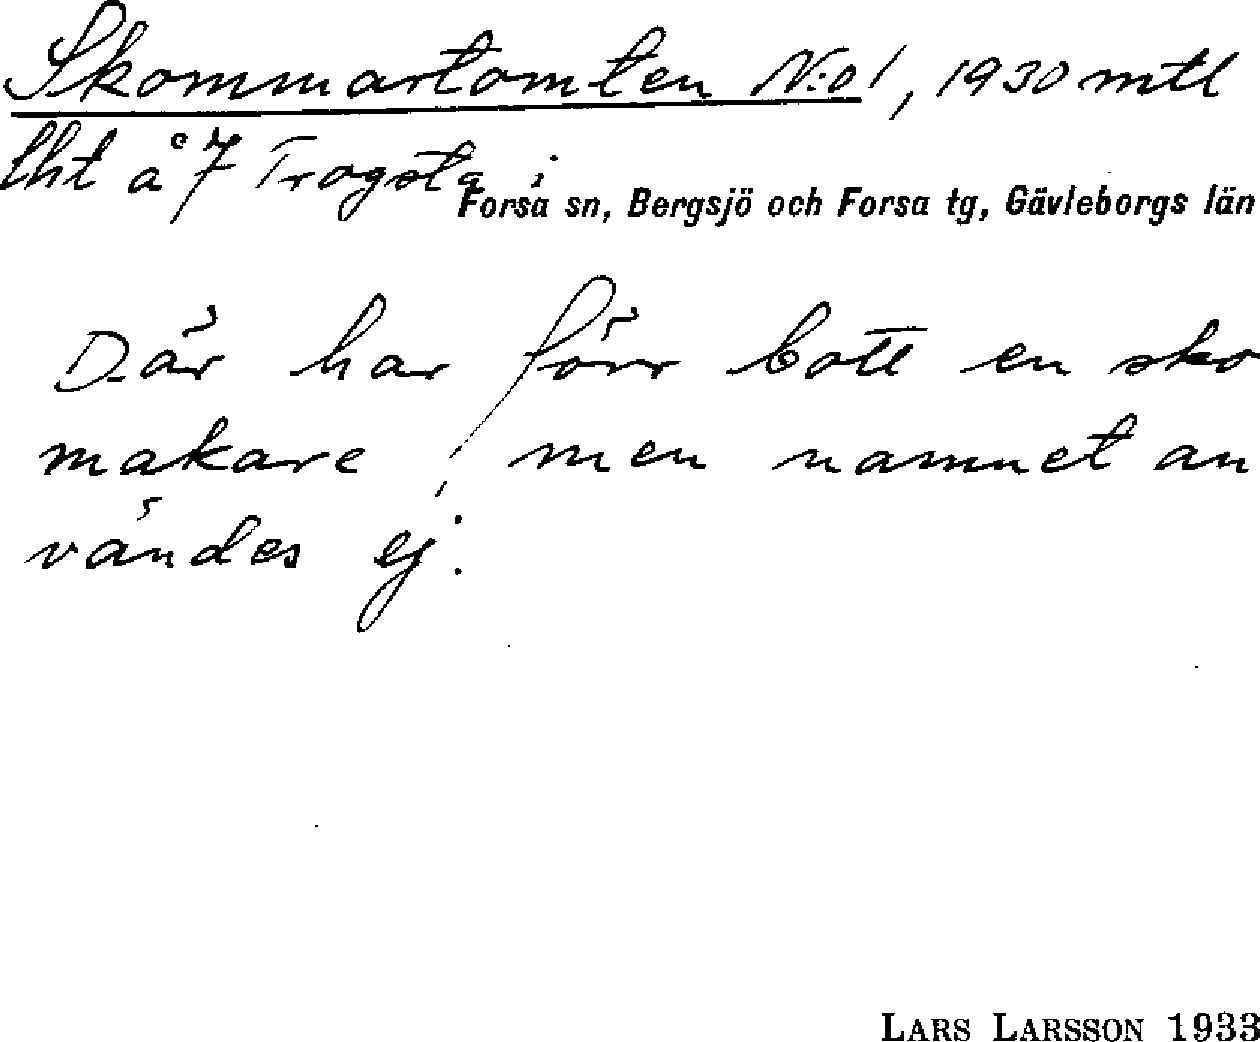 Skommartomten N:o 1, 1930 mtl
lht å 7 Trogsta i
Forsa sn, Bergsjö och Forsa tg, Gävleborgs län
Där har förr bott en sko
makare, men namnet an
vändes ej.
LARS LARSSON 1933